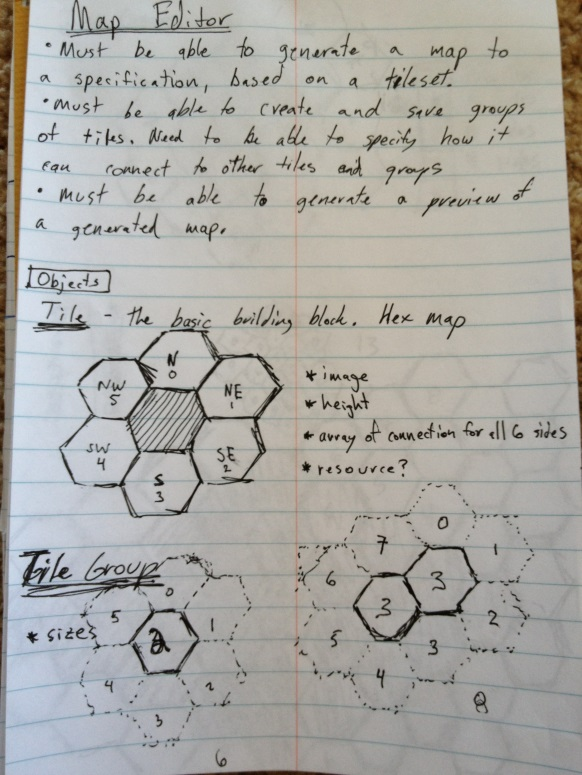 Map Editor
• Must be able to generate a map to
a specification, based on a tileset.
• Must be able to create and save groups
of tiles. Need to be able to specify how it
can connect to other tiles and groups
• Must be able to generate a preview of
a generated map.
Objects
Tile - the basic building block. Hex map
N
0
NW
5
NE
1
SW
4
SE
2
S
3
* image
* height
* array of connection for all 6 sides
* resource?
Tile Group
* sizes
0
5
1
2
4
2
3
6
0
7
1
6
3
3
2
5
3
4
8